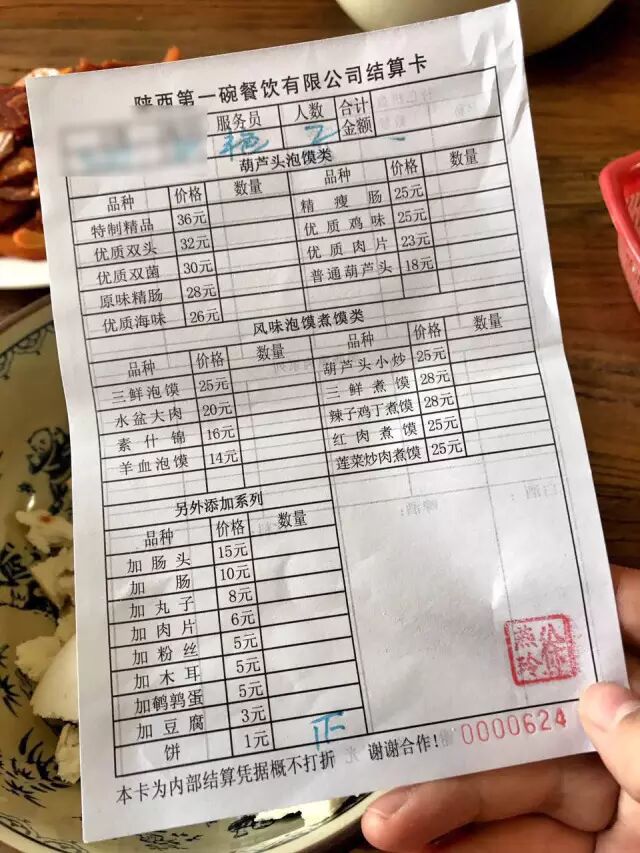 陕西第一碗餐饮有限公司结算卡
服务员 人数 2 合计金额
葫芦头泡馍类
品种 价格 数量 品种 价格 数量
特制精品 36元 精瘦肠 25元
优质双头 32元 优质鸡味 25元
优质双菌 30元 优质肉片 23元
原味精肠 28元 普通葫芦头 18元
优质海味 26元
风味泡馍煮馍类
品种 价格 数量 品种 价格 数量
三鲜泡馍 25元 葫芦头小炒 25元
水盆大肉 20元 三鲜煮馍 28元
素什锦 16元 辣子鸡丁煮馍 28元
羊血泡馍 14元 红肉煮馍 25元
莲菜炒肉煮馍 25元
另外添加系列
品种 价格 数量
加肠头 15元
加肠 10元
加丸子 8元
加肉片 6元
加粉丝 5元
加木耳 5元
加鹌鹑蛋 5元
加豆腐 3元
饼 1元 正
本卡为内部结算凭据概不打折 谢谢合作!
0000624